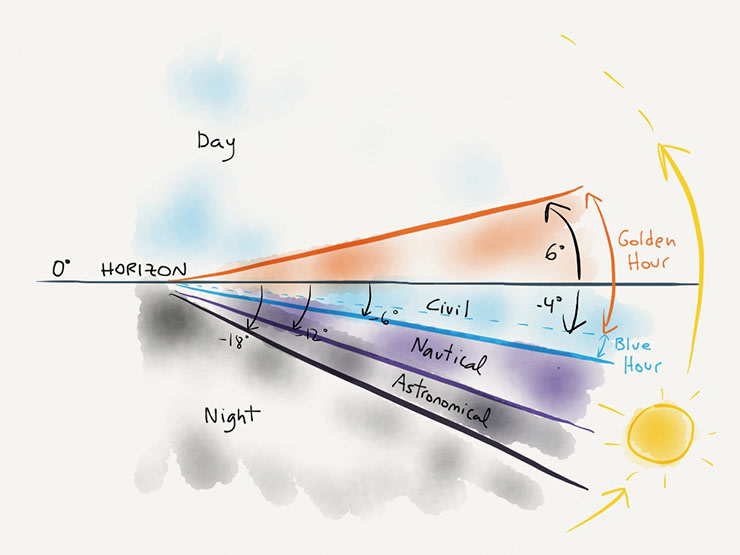 Day
6°
Golden
Hour
0° HORIZON
Civil
-4°
-6°
-12°
-18°
Nautical
Blue
Hour
Astronomical
Night